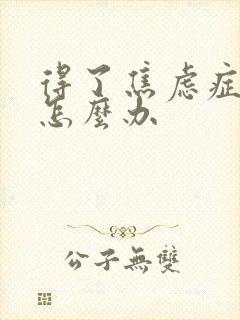 得了焦虑症
怎麼办
公子無雙